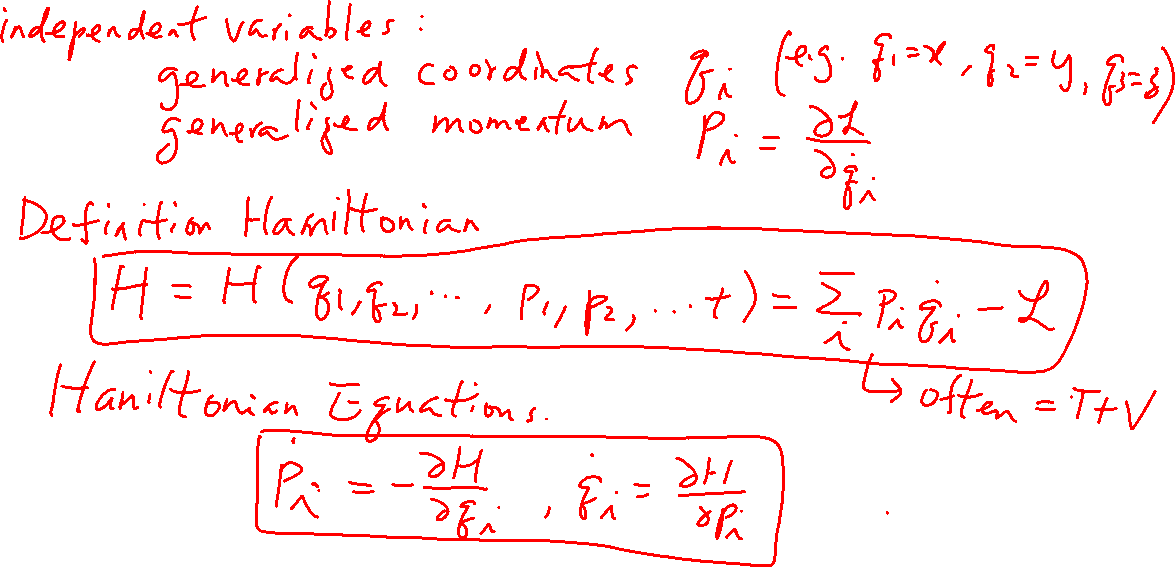 independent variables:
generalized coordinates qᵢ (e.g. q₁=x, q₂=y, q₃=z)
generalized momentum Pᵢ = ∂ℒ/∂q̇ᵢ
Definition Hamiltonian
H = H(q₁,q₂,..., P₁,p₂,...t) = Σᵢ Pᵢ q̇ᵢ - ℒ
↳ often = T+V
Hamiltonian Equations.
Ṗᵢ = -∂H/∂qᵢ , q̇ᵢ = ∂H/∂Pᵢ